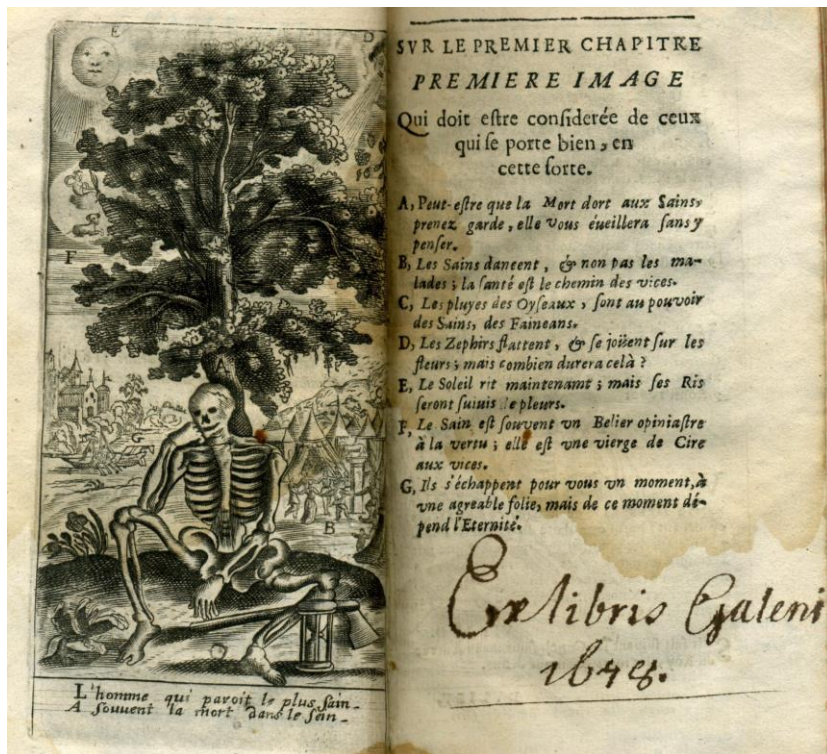 E
D
F
A
G
B
L'homme qui paroit le plus sain
A souvent la mort dans le sein
SVR LE PREMIER CHAPITRE
PREMIERE IMAGE
Qui doit estre considerée de ceux
qui se porte bien, en
cette sorte.
A, Peut-estre que la Mort dort aux Sains,
prenez garde, elle vous éueillera sans y
penser.
B, Les Sains danceent, & non pas les ma-
lades; la santé est le chemin des vices.
C, Les pluyes des Oyseaux, sont au pouvoir
des Sains, des Faineans.
D, Les Zephirs flattent, & se joüent sur les
fleurs; mais combien durera celà?
E, Le Soleil rit maintenamt; mais ses Ris
seront suiuis de pleurs.
F, Le Sain est souvent vn Belier opiniastre
à la vertu; elle est vne vierge de Cire
aux vices.
G, Ils s'échappent pour vous vn moment, à
vne agreable folie, mais de ce moment dé-
pend l'Eternité.
Ex libris Galeni